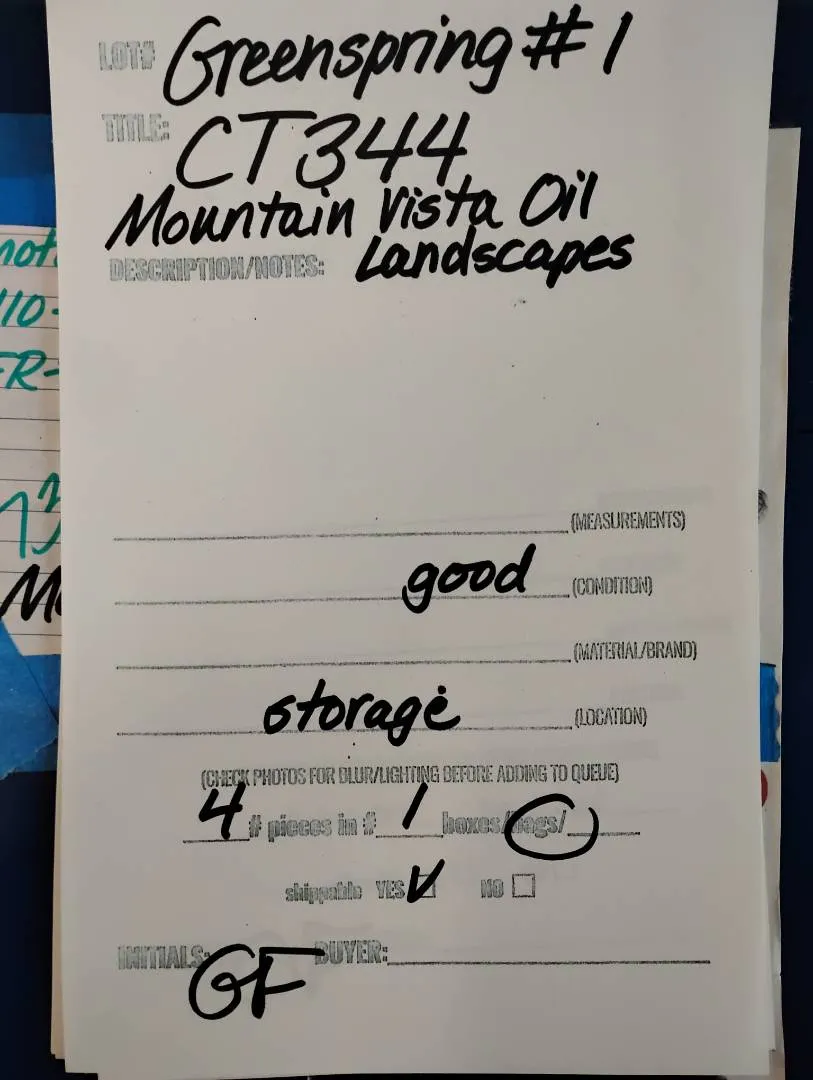 LOT# Greenspring #1
TITLE: CT344
Mountain Vista Oil
DESCRIPTION/NOTES: Landscapes
(MEASUREMENTS)
good (CONDITION)
(MATERIAL/BRAND)
storage (LOCATION)
(CHECK PHOTOS FOR BLUR/LIGHTING BEFORE ADDING TO QUEUE)
4 # pieces in # 1 boxes/bags/
shippable YES NO
INITIALS: GF BUYER:
110-